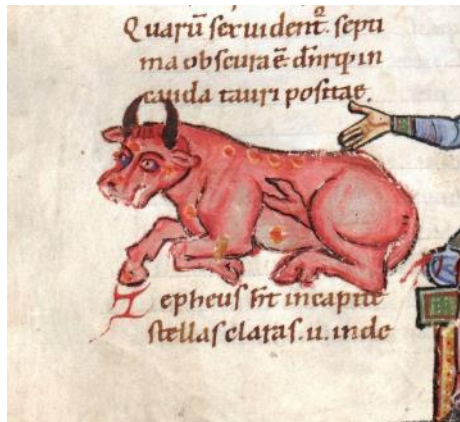 Quarū sex uident̄. septi
ma obscura ē. dn̄rq; in
cauda tauri positae.
Cepheus h̄t in capite
stellas claras .u. inde